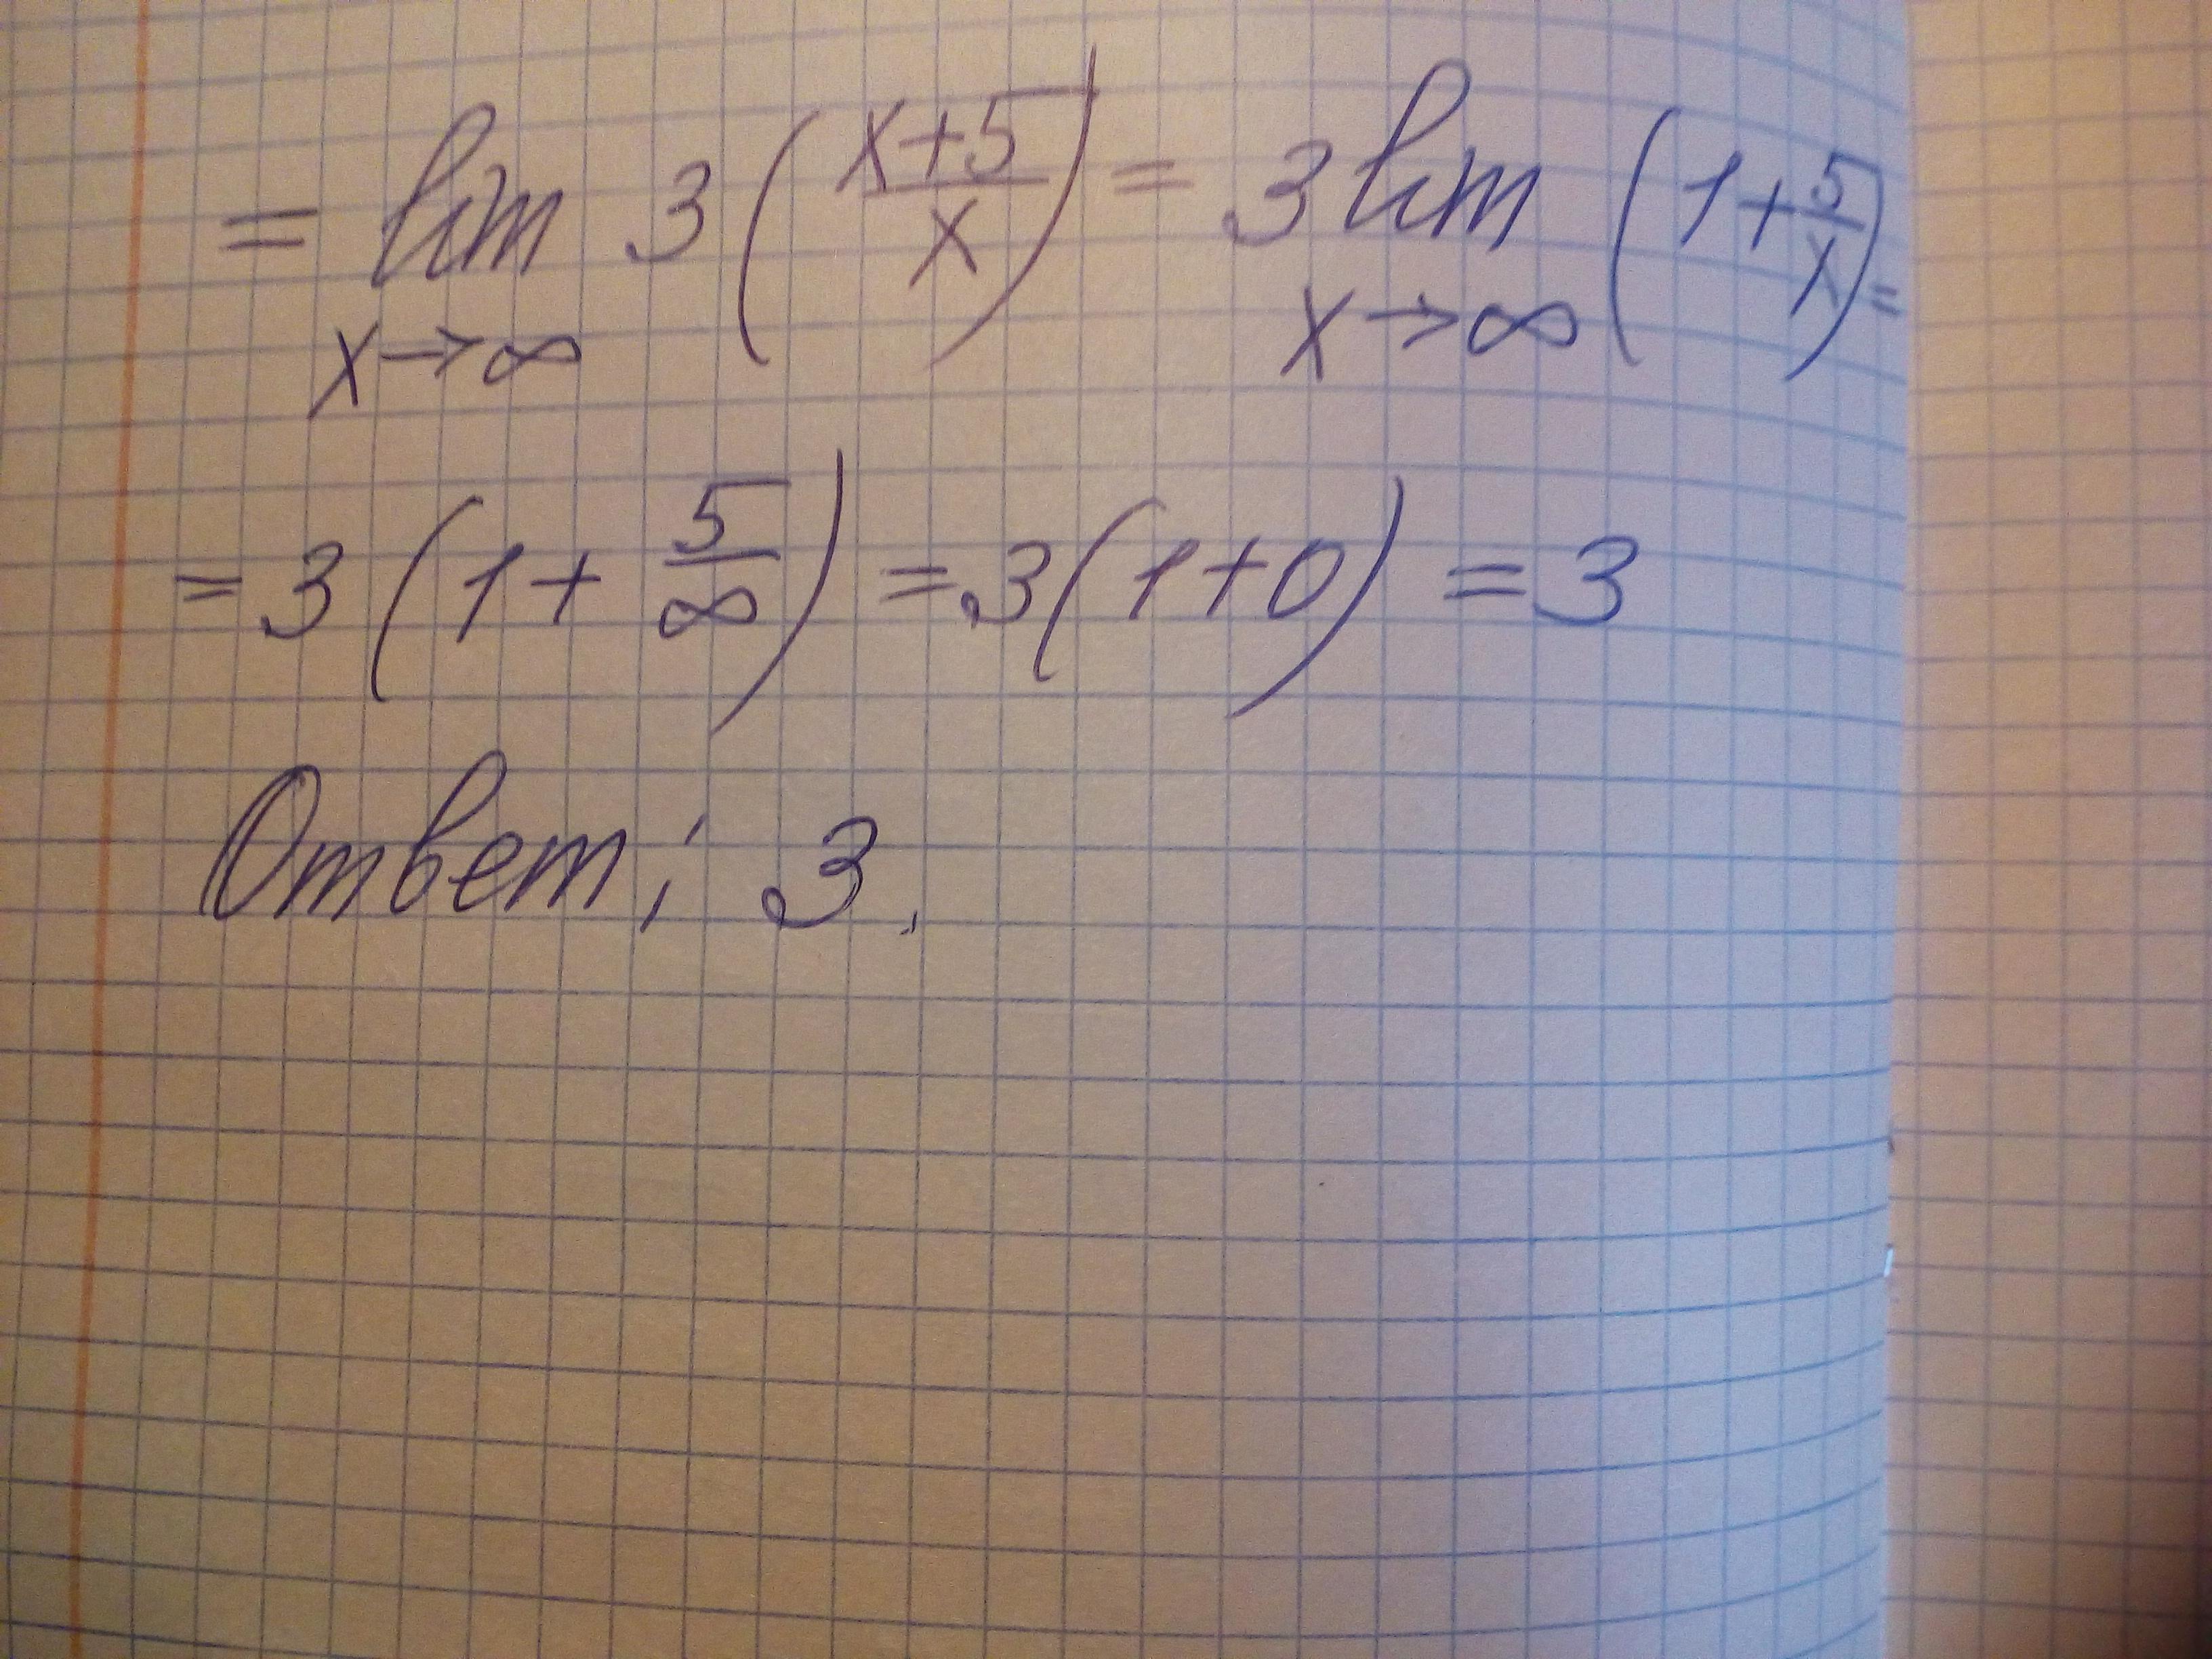 = lim 3 (x+5/x) = 3 lim (1+5/x) =
x→∞ x→∞
= 3 (1 + 5/∞) = 3(1+0) = 3
Ответ: 3.